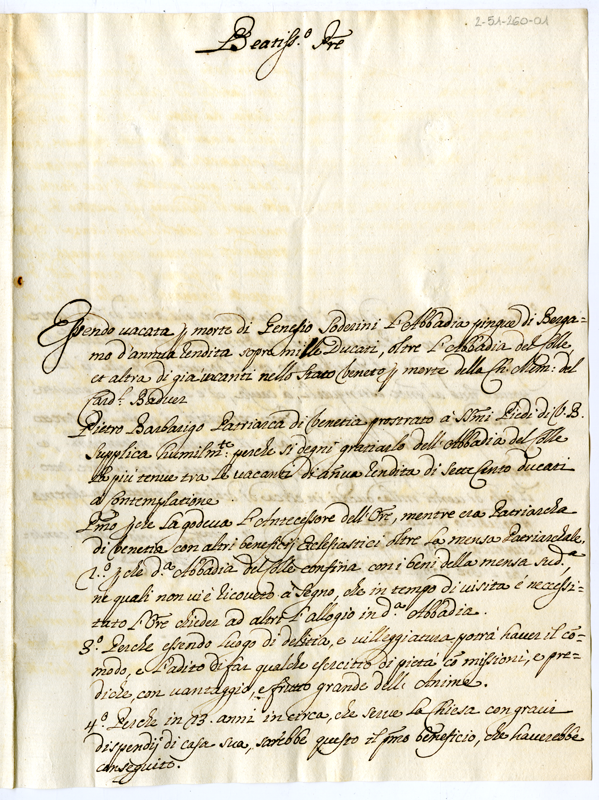 2-51-260-01
Beatiss.º Pre
Essendo vacata p morte di Genesio Soderini l'Abbadia pingue di Berga-
mo d'annua rendita sopra mille Ducati, oltre l'Abbadia del Colle
et altra di già vacanti nello stato Veneto p morte della Ch: Mem: del
Card.l Badoer
Pietro Barbarigo Patriarca di Venetia prostrato à S.mi Piedi di V. B.
supplica humilm.te perche si degni gratiarlo dell'Abbadia del Colle
la più tenue tra le vacanti di añua rendita di settecento ducati
à contemplatione
P.mo p che la godeva l'Antecessore dell'Ore, mentre era Patriarcha
di Venetia con altri beneficij Eclesiastici oltre la mensa Patriarchale,
2.º p che d.ª Abbadia del Colle confina con i beni della mensa sud.ª
ne quali non vi è ricovero à segno, che in tempo di visita è neccessi-
tato l'Ore chieder ad altri l'allogio in d.ª Abbadia.
3.º Perche essendo luogo di delitia, e villeggiatura, potrà haver il co-
modo, e l'adito di far qualche esercitio di pietà cō missioni, e pre-
diche, con vantaggio, e frutto grande delle Anime.
4.º Perche in 13. anni in circa, che serve la Chiesa con gravi
dispendij di casa sua, sarebbe questo il p.mo beneficio, che haverebbe
conseguito.